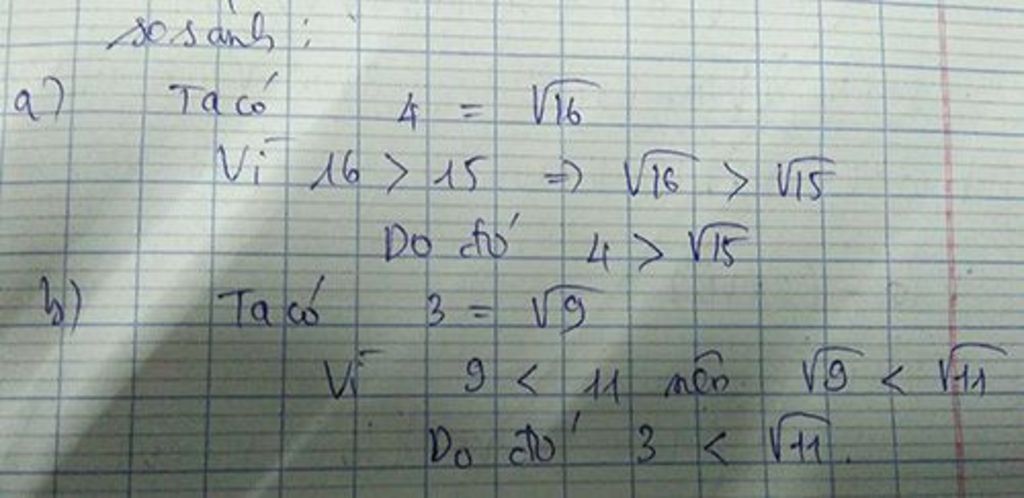 so sánh :
a) Ta có 4 = √16
Vì 16 > 15 => √16 > √15
Do đó 4 > √15
b) Ta có 3 = √9
Vì 9 < 11 nên √9 < √11
Do đó 3 < √11.